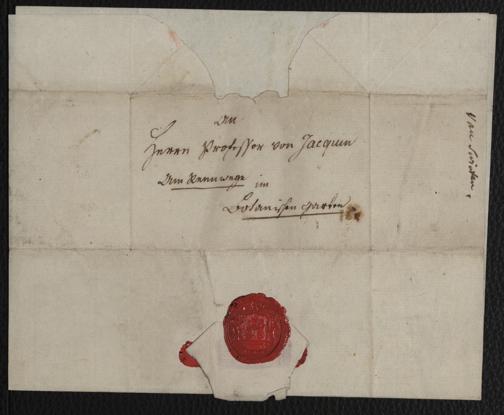 An
Herrn Professor von Jacquin
Am Rennwege im
Botanischen Garten
Van Swieten.